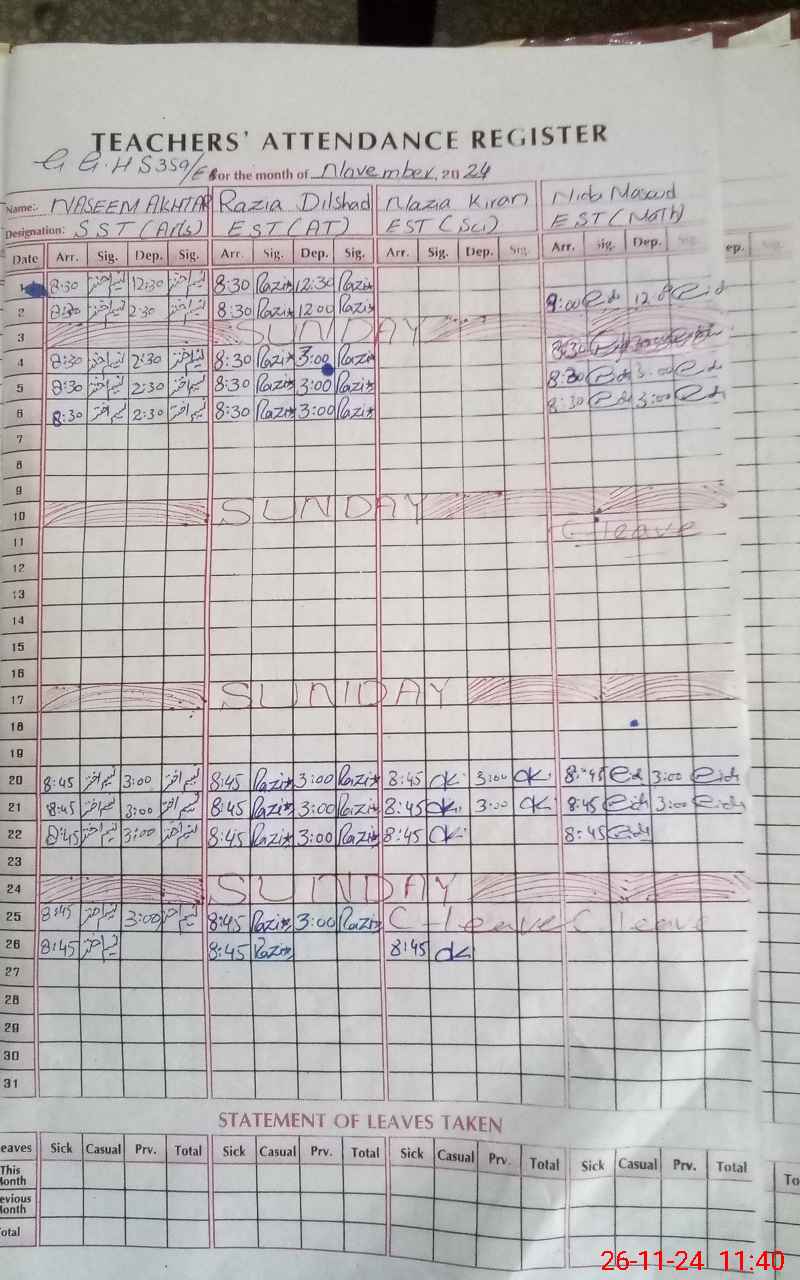 TEACHERS' ATTENDANCE REGISTER
G G.H S 359/E for the month of November, 2024
Name: NASEEM AKHTAR Razia Dilshad Nazia Kiran Nida Masud
Designation: SST (Arts) EST (AT) EST (Sci) EST (Math)
Date Arr. Sig. Dep. Sig. Arr. Sig. Dep. Sig. Arr. Sig. Dep. Sig. Arr. Sig. Dep. Sig. ep. Sig.
1 8:30 نسیم اختر 12:30 نسیم اختر 8:30 Razia 12:30 Razia
2 8:30 نسیم اختر 2:30 نسیم اختر 8:30 Razia 12 00 Razia 9:00
3 SUNDAY
4 8:30 نسیم اختر 2:30 نسیم اختر 8:30 Razia 3:00 Razia
5 8:30 نسیم اختر 2:30 نسیم اختر 8:30 Razia 3:00 Razia 8:30 3:00
6 8:30 نسیم اختر 2:30 نسیم اختر 8:30 Razia 3:00 Razia 8:30 3:00
7
8
9
10 SUNDAY
11 C-leave
12
13
14
15
16
17 SUNDAY
18
19
20 8:45 نسیم اختر 3:00 نسیم اختر 8:45 Razia 3:00 Razia 8:45 3:00 8:45 3:00
21 8:45 نسیم اختر 3:00 نسیم اختر 8:45 Razia 3:00 Razia 8:45 3:00 8:45 3:00
22 8:45 نسیم اختر 3:00 نسیم اختر 8:45 Razia 3:00 Razia 8:45 8:45
23
24 SUNDAY
25 8:45 نسیم اختر 3:00 نسیم اختر 8:45 Razia 3:00 Razia C-leave C leave
26 8:45 نسیم اختر 8:45 Razia 8:45
27
28
29
30
31
STATEMENT OF LEAVES TAKEN
eaves Sick Casual Prv. Total Sick Casual Prv. Total Sick Casual Prv. Total Sick Casual Prv. Total To
This
onth
evious
onth
otal
26-11-24 11:40